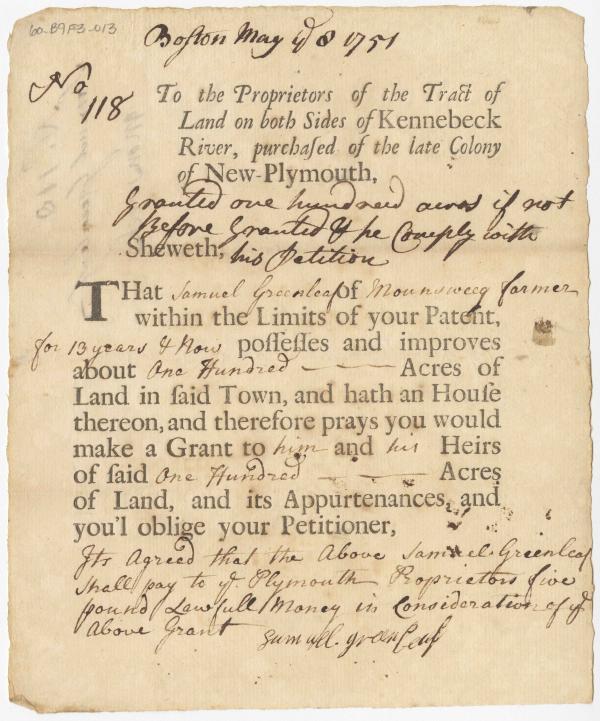 60-B9F3-013
Boston May yᵈ 8 1751
No
118
To the Proprietors of the Tract of
Land on both Sides of Kennebeck
River, purchaſed of the late Colony
of New-Plymouth,
Granted one hundred acres if not
Before Granted & he Comply with
Sheweth, his Petition
THat Samuel Greenleaf of Mounsweeg farmer
within the Limits of your Patent,
for 13 years & Now poſſeſſes and improves
about One Hundred Acres of
Land in ſaid Town, and hath an Houſe
thereon, and therefore prays you would
make a Grant to him and his Heirs
of ſaid One Hundred Acres
of Land, and its Appurtenances, and
you'l oblige your Petitioner,
Its Agreed that the Above Samuel Greenleaf
Shall pay to yᵉ Plymouth Proprietors five
pound Lawfull Money in Consideration of yᵉ
Above Grant Samuell greenleaf